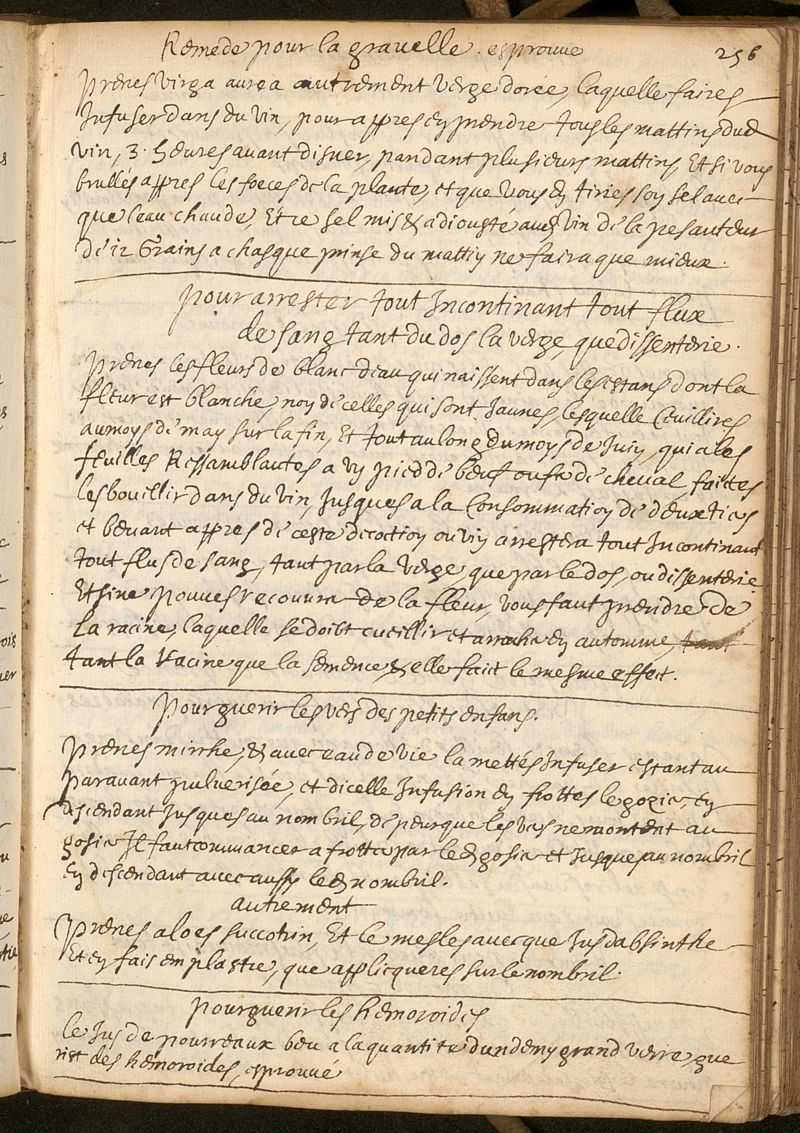 Remede pour la gravelle. esprouve 256
prenes virga aurea autrement verge dorée, laquelle faires
Infuser dans du vin, pour appres en prendre tous les mattins dud
vin, 3. heures avant disner, pandant plusieurs mattins, Et si vous
brullés appres les foeces de la plante, et que vous en tiries son sel avec
que leau chaude, Et ce sel mis & adiousté aud vin de la pesanteur
de 12 Grains a chasque prinse du mattin ne faira que mieux.
pour arrester tout Incontinant tout flux
de sang tant du dos la verge, que dissenterie.
prenes les fleurs de blanc deau qui naissent dans les estans dont la
fleur est blanche, non de celles qui sont Jaunes, lesquelle Cuillires
au moys de may sur la fin, Et tout au long du moys de Juin, qui a les
feuilles Ressamblantes a un pied de beuf ou de cheval faites
les bouillir dans du vin, Jusques a la Consommation de deux tiers
et beuvant appres de ceste decoction ou vin arrestera tout Incontinant
tout flus de sang, tant par la verge, que par le dos, ou dissenterie
Et si ne pouves recouvrir de la fleur, vous faut prendre de
la racine, laquelle se doibt cueillir et arracher en automne, tant
tant la racine que la semence, & elle fait le mesme effect.
Pour guerir les vers des petits enfans.
prenes mirrhe, & avec eau de vie la mettés Infuser estant au
paravant pulverisée, et dicelle Infusion en frottes le gosier, en
descendant Jusques au nombril, de peur que les vers ne montent au
gosier Il faut commancer a frotter par led gosier et Jusques au nombril
En descendant avec aussy led nombril.
autrement
Prenes aloes succotrin, Et le mesles avecque Jus dabsinthe
Et en fais emplastre, que applicqueres sur le nombril.
pour guerir les hemoroides
le Jus de pourreaux beu a la quantite dun demy grand verre, gue
rist des hemoroides, esprouvé